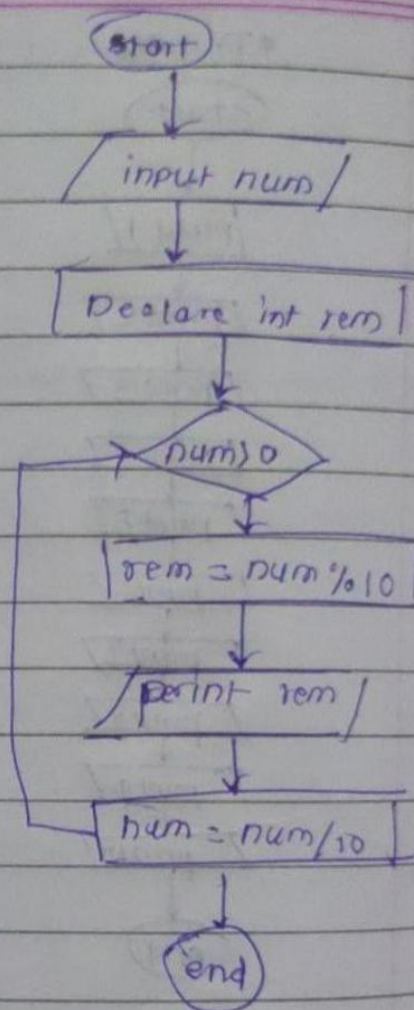 start
input num
Dealare int rem
num>0
rem = num % 10
perint rem
num = num/10
end